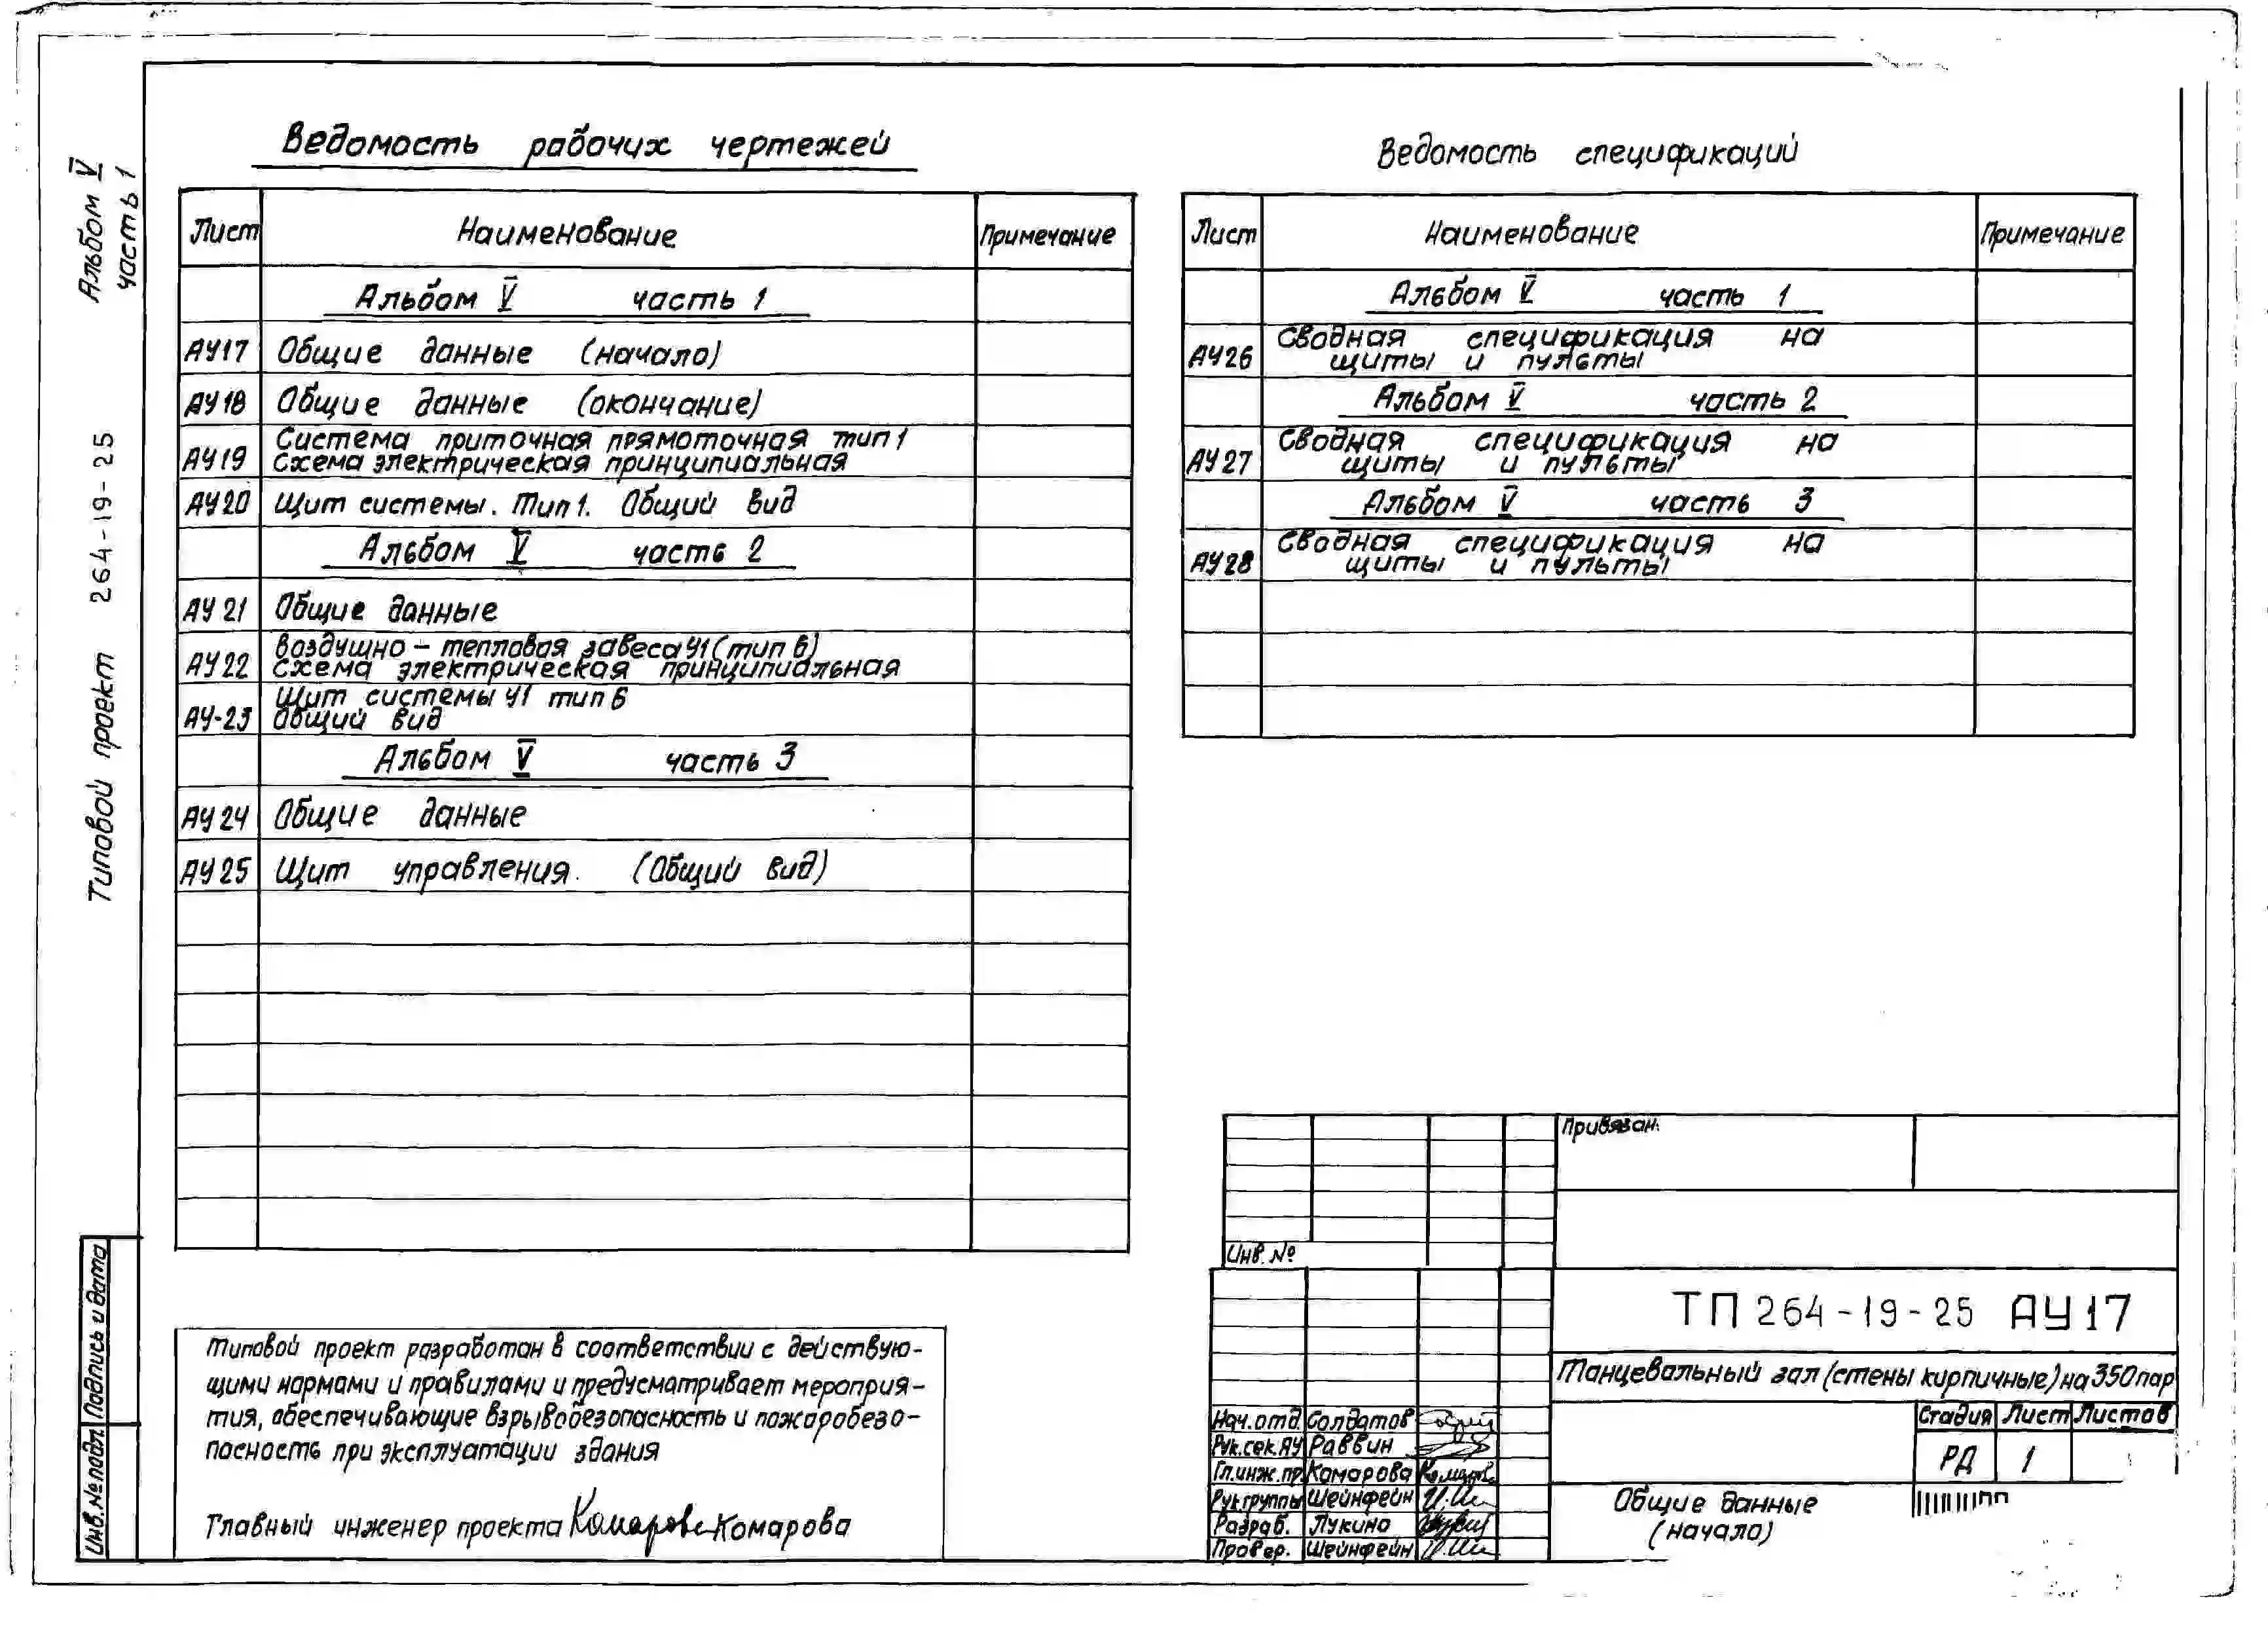 Альбом V
часть 1
Типовой проект 264-19-25
Ведомость рабочих чертежей
Лист Наименование Примечание
Альбом V часть 1
АУ17 Общие данные (начало)
АУ18 Общие данные (окончание)
АУ19 Система приточная прямоточная тип 1
Схема электрическая принципиальная
АУ20 Щит системы. Тип 1. Общий вид
Альбом V часть 2
АУ21 Общие данные
АУ22 Воздушно-тепловая завеса У1 (тип 6)
Схема электрическая принципиальная
АУ-23 Щит системы У1 тип 6
Общий вид
Альбом V часть 3
АУ24 Общие данные
АУ25 Щит управления. (Общий вид)
Ведомость спецификаций
Лист Наименование Примечание
Альбом V часть 1
АУ26 Сводная спецификация на
щиты и пульты
Альбом V часть 2
АУ27 Сводная спецификация на
щиты и пульты
Альбом V часть 3
АУ28 Сводная спецификация на
щиты и пульты
Типовой проект разработан в соответствии с действую-
щими нормами и правилами и предусматривает мероприя-
тия, обеспечивающие взрывобезопасность и пожаробезо-
пасность при эксплуатации здания
Главный инженер проекта Комарова Комарова
Инв.№подл. Подпись и дата
Привязан:
Инв. №
ТП 264-19-25 АУ17
Танцевальный зал (стены кирпичные) на 350 пар
Стадия Лист Листов
РД 1
Нач.отд. Солдатов
Рук.сек.АУ Раввин
Гл.инж.пр. Комарова
Рук.группы Шейнфейн
Разраб. Лукина
Провер. Шейнфейн
Общие данные
(начало)